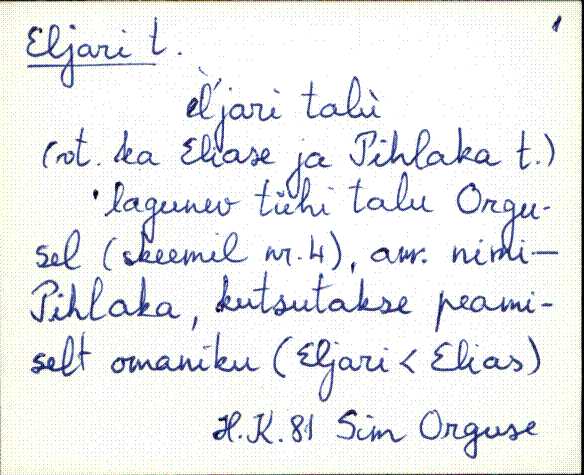 1
Eljari t.
èl'jari talù
(vt. ka Eliase ja Pihlaka t.)
lagunev tühi talu Orgu-
sel (skeemil nr. 4), am. nimi—
Pihlaka, kutsutakse peami-
selt omaniku (Eljari < Elias)
H.K. 81 Sim Orguse